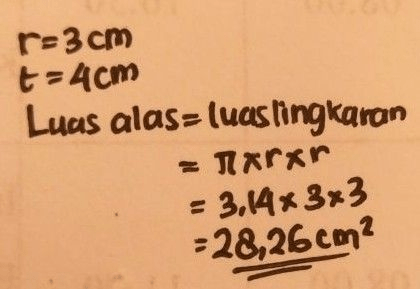 r = 3 cm
t = 4 cm
Luas alas = luas lingkaran
= π x r x r
= 3,14 x 3 x 3
= 28,26 cm²